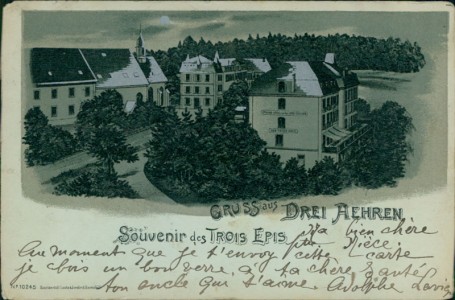 GRUSS aus DREI AEHREN
Souvenir des TROIS EPIS
Ma bien chère
Nièce
Au moment que je t'envoy cette carte
je bois un bon verre, à ta chère santé
ton oncle qui t'aime Adolphe